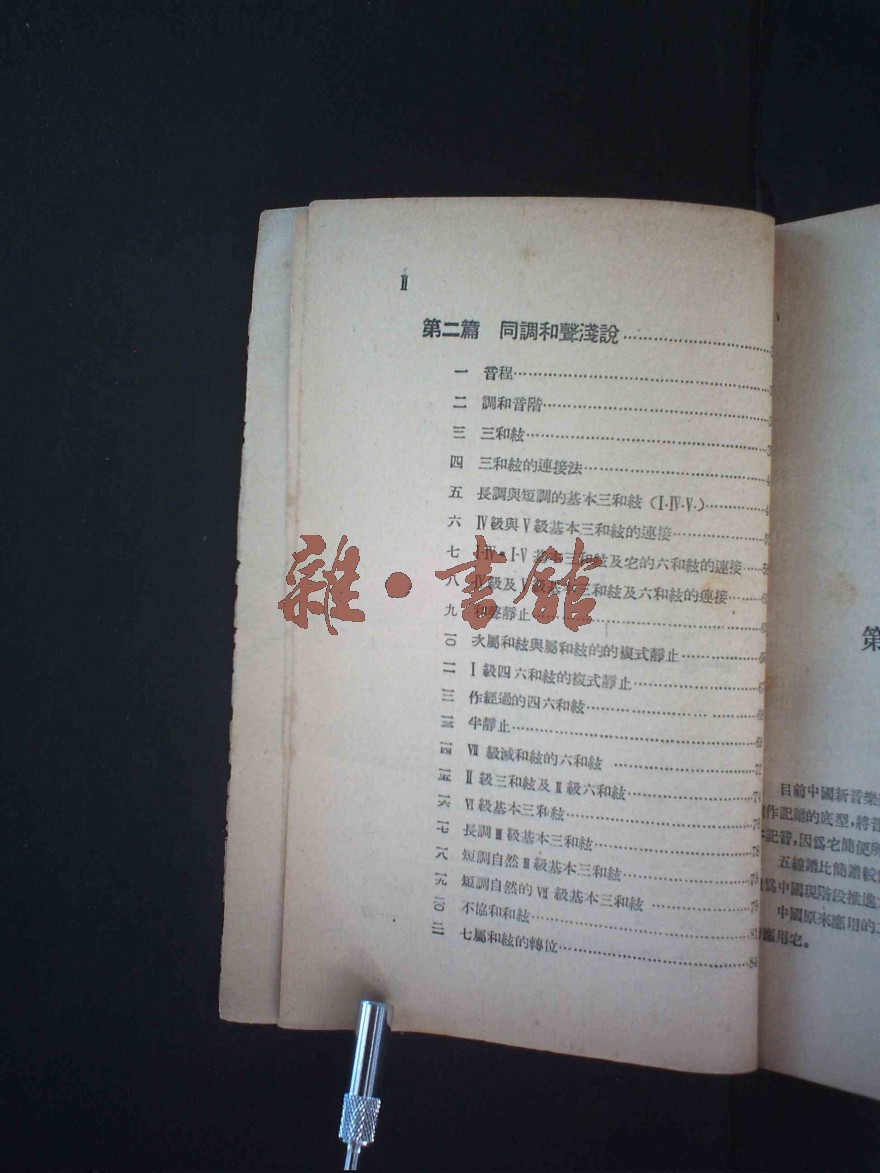 II
第二篇 同調和聲淺說
一 音程
二 調和音階
三 三和絃
四 三和絃的連接法
五 長調與短調的基本三和絃（I·IV·V·）
六 IV級與V級基本三和絃的連接
七 I-IV·I-V基本三和絃及它的六和絃的連接
八 IV級及V級基本三和絃及六和絃的連接
九 和聲靜止
一〇 次屬和絃與屬和絃的的複式靜止
一一 I級四六和絃的複式靜止
一二 作經過的四六和絃
一三 半靜止
一四 VII級減和絃的六和絃
一五 II級三和絃及II級六和絃
一六 VI級基本三和絃
一七 長調III級基本三和絃
一八 短調自然III級基本三和絃
一九 短調自然的VII級基本三和絃
二〇 不協和和絃
二一 七屬和絃的轉位
雜·書館
第
目前中國新音樂
作記譜的底型，將音
記音，因爲它簡便所
五線譜比簡譜較
爲中國現階段推進
中國原來應用的工
應用它。